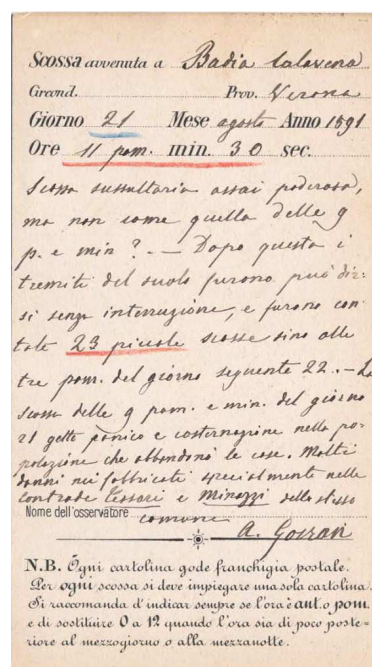 Scossa avvenuta a Badia Calavena
Circond. Prov. Verona
Giorno 21 Mese agosto Anno 1891
Ore 11 pom. min. 30 sec.
Scossa sussultoria assai poderosa,
ma non come quella delle 9
p. e min ? — Dopo questa i
tremiti del suolo furono può dir-
si senza interruzione, e furono con
tate 23 piccole scosse sino alle
tre pom. del giorno seguente 22. — La
scossa delle 9 pom. e min. del giorno
21 gettò panico e costernazione nella po-
polazione che abbandonò le case. Molti
danni nei fabbricati specialmente nelle
contrade Tessari e Minazzi dello stesso
Nome dell'osservatore comune
A.
N.B. Ogni cartolina gode franchigia postale.
Per ogni scossa si deve impiegare una sola cartolina.
Si raccomanda d'indicar sempre se l'ora è ant. o pom.
e di sostituire 0 a 12 quando l'ora sia di poco poste-
riore al mezzogiorno o alla mezzanotte.